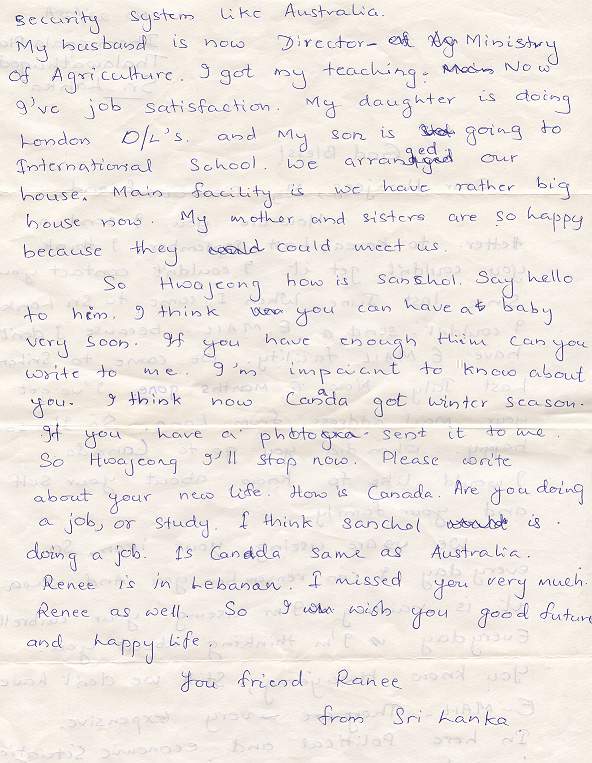 security system like Australia.
My husband is now Director- Ag Ministry
of Agriculture. I got my teaching. Now
I've job satisfaction. My daughter is doing
London O/L's. and My son is going to
International School. We arranged our
house. Main facility is we have rather big
house now. My mother and sisters are so happy
because they could meet us.
So Hwajeong how is sanchol. Say hello
to him. I think you can have a baby
very soon. If you have enough thim can you
write to me. I'm impaiant to know about
you. I think now Canada got winter season.
If you have a photo sent it to me.
So Hwajeong I'll stop now. Please write
about your new life. How is Canada. Are you doing
a job, or study. I think sanchol is
doing a job. Is Canada same as Australia.
Renee is in Lebanan. I missed you very much.
Renee as well. So I wish you good future
and happy life.
You friend Ranee
from Sri Lanka